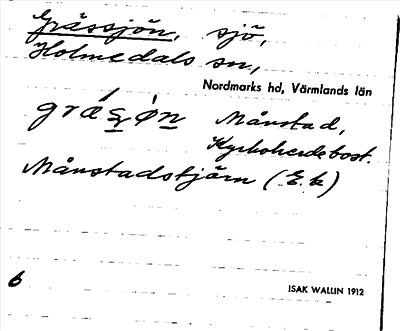 Grässjön, sjö,
Holmedals sn,
Nordmarks hd, Värmlands län
Månstad,
Kyrkoherdebost.
Månstadstjärn (E.k)
6
ISAK WALLIN 1912